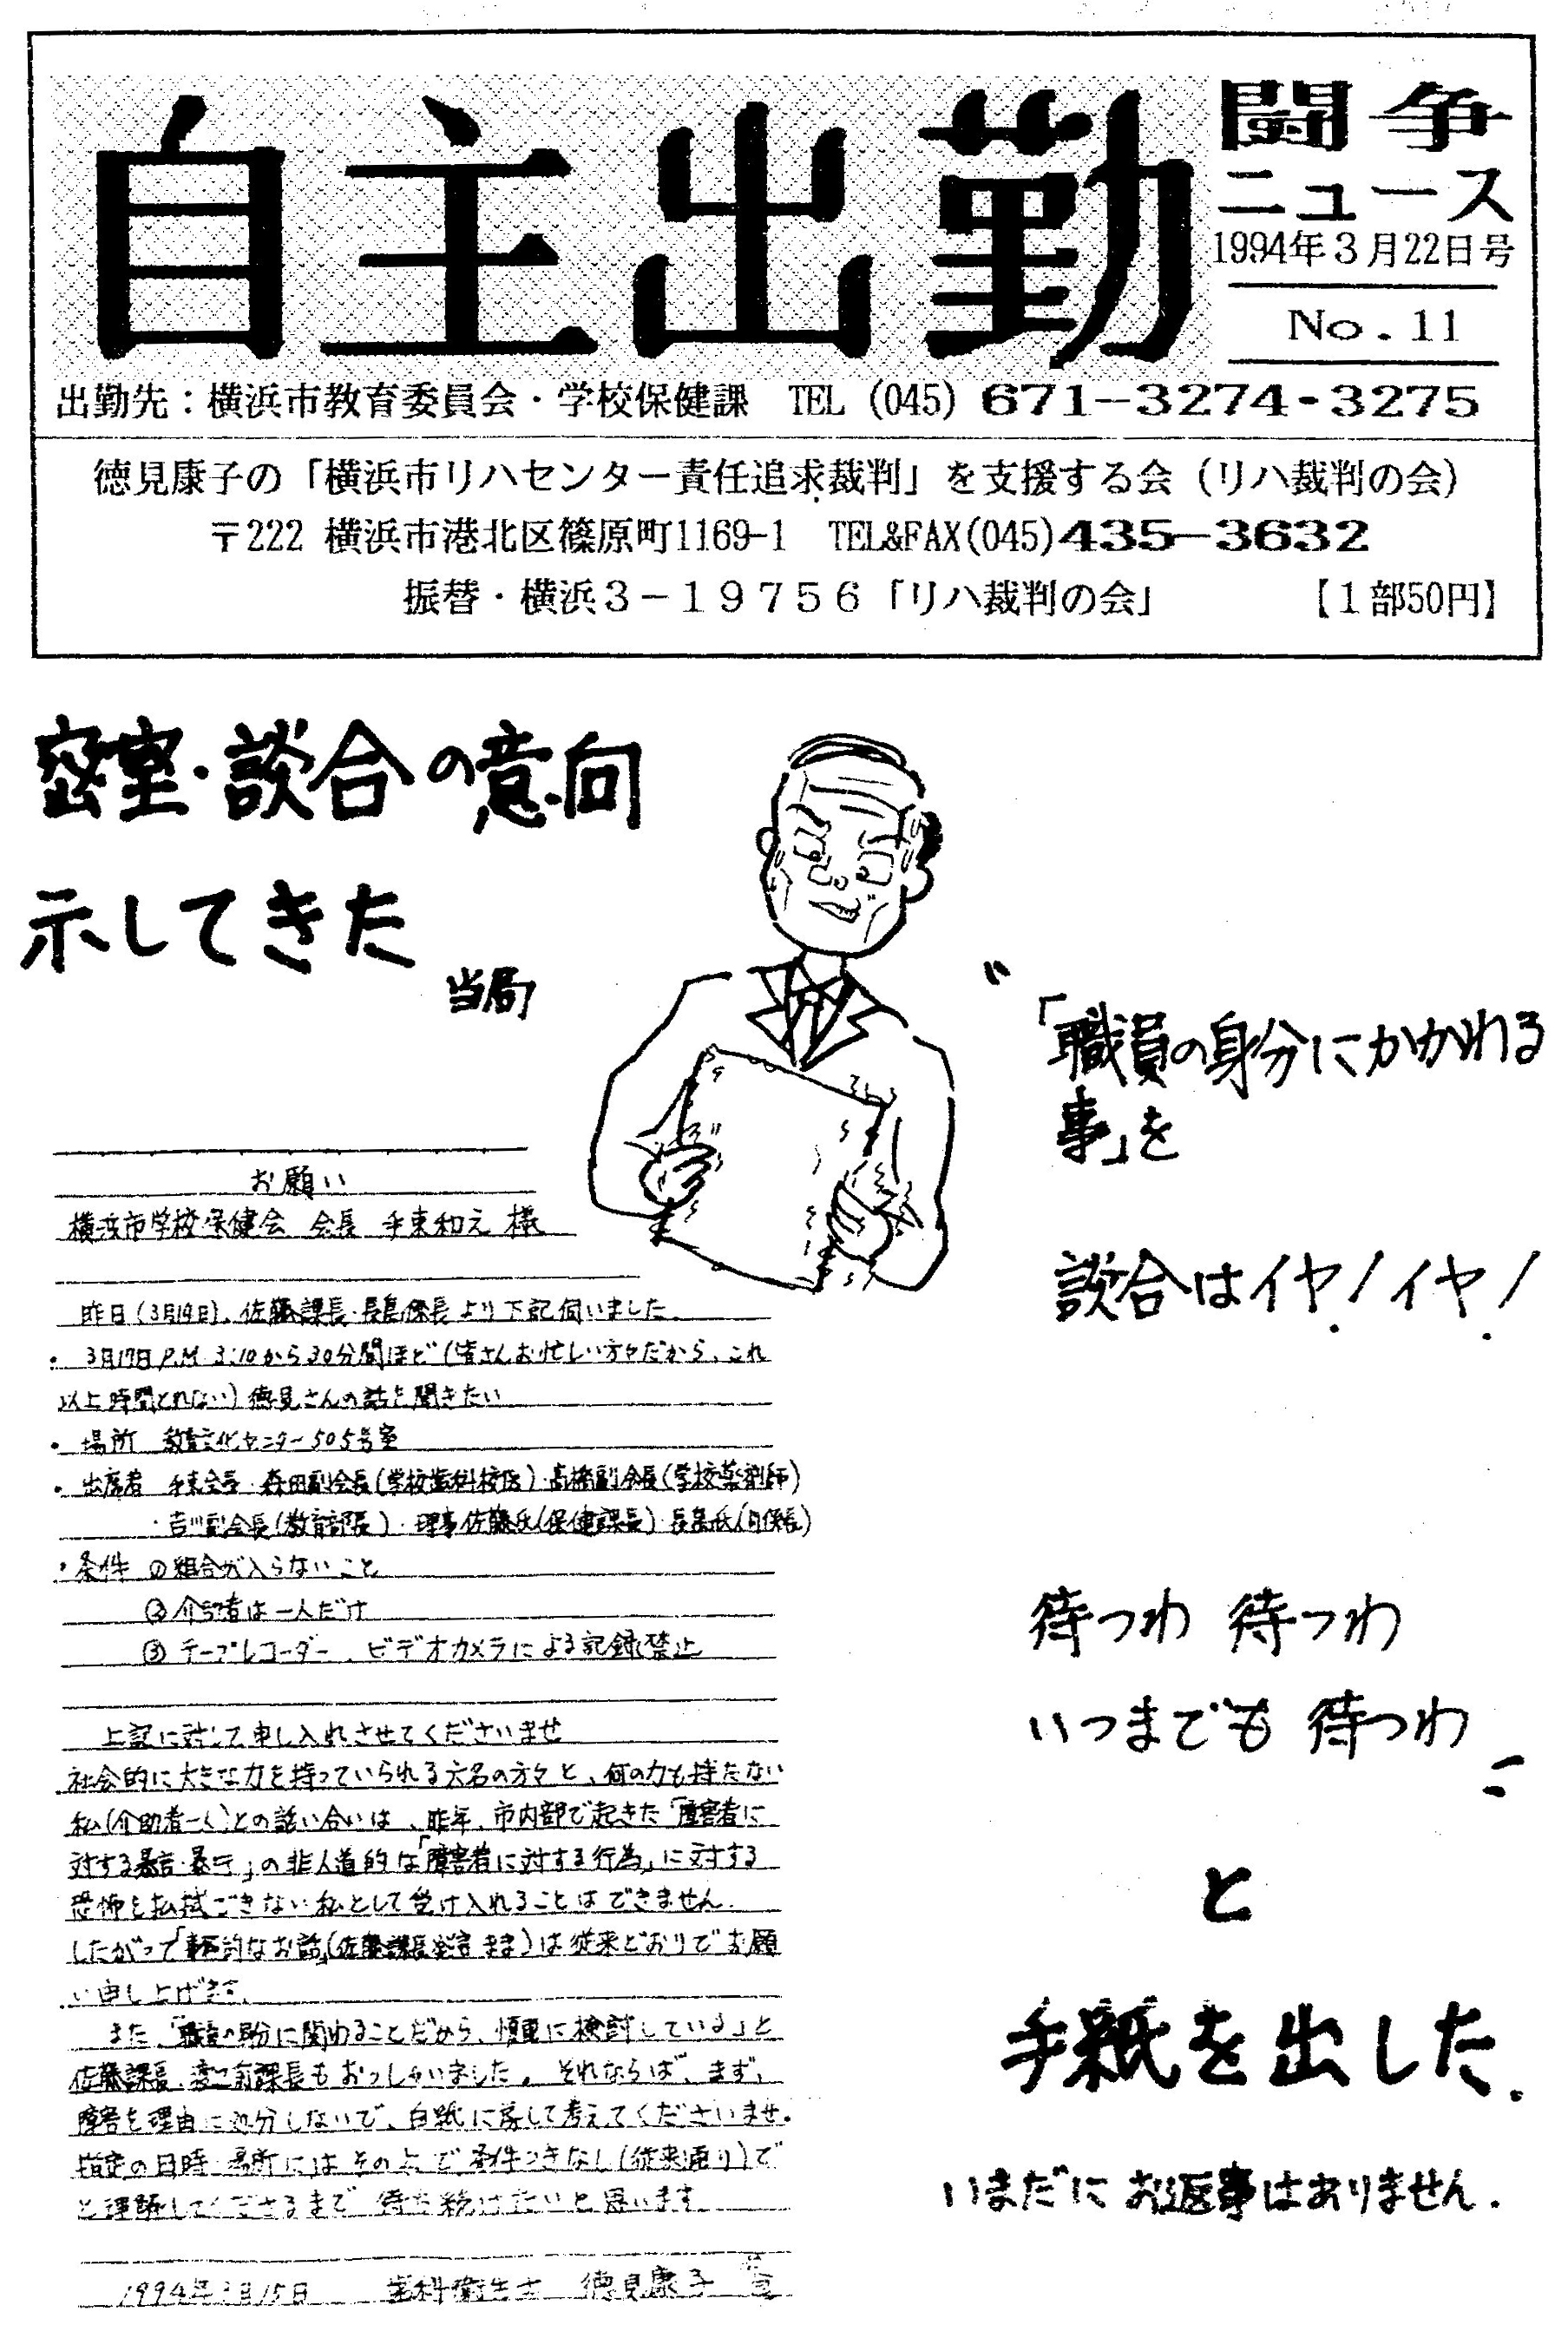 自主出勤
闘争
ニュース
1994年3月22日号
No.11
出勤先：横浜市教育委員会・学校保健課 TEL (045) 671-3274・3275
徳見康子の「横浜市リハセンター責任追求裁判」を支援する会（リハ裁判の会）
〒222 横浜市港北区篠原町1169-1 TEL&FAX(045)435-3632
振替・横浜3-19756「リハ裁判の会」 【1部50円】
密室・談合の意向
示してきた
当局
お願い
横浜市学校保健会 会長 手束和元 様
昨日(3月14日)、佐藤課長・長島係長より下記伺いました。
・3月17日P.M 3:10から30分間ほど(皆さんお忙しい方々だから、これ
以上時間とれない)徳見さんの話を聞きたい
・場所 教育文化センター505号室
・出席者 手束会長・森田副会長(学校歯科校医)・高橋副会長(学校薬剤師)
・吉川副会長(教育部長)・理事佐藤氏(保健課長)・長島氏(同係長)
・条件 ①組合が入らないこと
②介助者は一人だけ
③テープレコーダー、ビデオカメラによる記録禁止
上記に対して申し入れさせてくださいませ
社会的に大きな力を持っていられる六名の方々と、何の力も持たない
私(介助者一人)との話い合いは、昨年、市内部で起きた「障害者に
対する暴言・暴行」の非人道的な「障害者に対する行為」に対する
恐怖を払拭できない私として受け入れることはできません。
したがって「事務的なお話」(佐藤課長発言まま)は従来どおりでお願
い申し上げます。
また、「職員の身分に関わることだから、慎重に検討している」と
佐藤課長、前課長もおっしゃいました。それならば、まず、
障害を理由に処分しないで、白紙に戻して考えてくださいませ。
指定の日時・場所にはその上で条件つきなし(従来通り)で
と理解してくださるまで 待ち続けたいと思います
1994年3月15日 歯科衛生士 徳見康子
〝
「職員の身分にかかわる
事」を
談合はイヤ！イヤ！
待つわ 待つわ
いつまでも 待つわ
〟
と
手紙を出した.
いまだに お返事はありません.